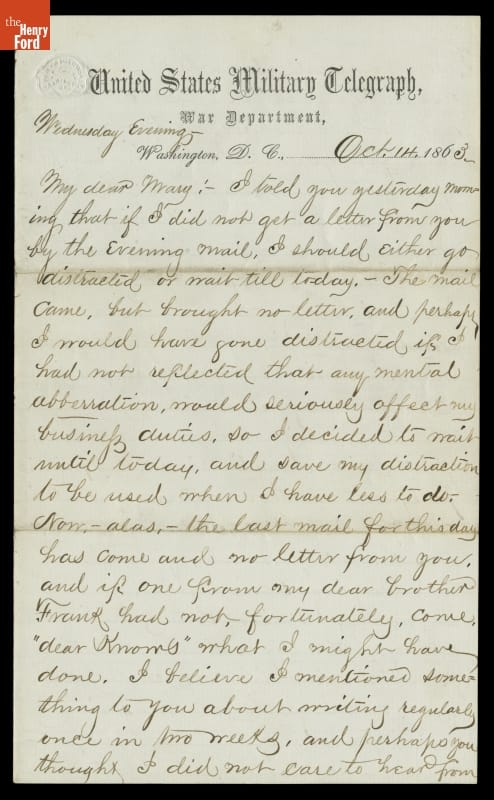 the
Henry
Ford
United States Military Telegraph,
War Department,
Wednesday Evening—
Washington, D. C., Oct. 14. 1863.
My dear Mary:— I told you yesterday morn-
ing, that if I did not get a letter from you
by the Evening mail, I should either go
distracted or wait till today.— The mail
came, but brought no letter, and perhaps
I would have gone distracted if I
had not reflected that any mental
abberration, would seriously affect my
business duties, so I decided to wait
until today, and save my distraction
to be used when I have less to do.
Now,—alas,—the last mail for this day
has come and no letter from you,
and if one from my dear brother
Frank had not, fortunately, come,
"dear Knows" what I might have
done. I believe I mentioned some-
thing to you about writing regularly
once in two weeks, and perhaps you
thought I did not care to hear from